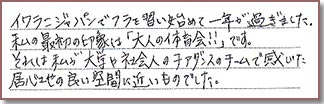 イワラニジャパンでフラを習い始めて一年が過ぎました。
私の最初の印象は「大人の体育会!!」です。
それは私が大学や社会人のチアダンスのチームで感じた
居心地の良い空間に近いものでした。